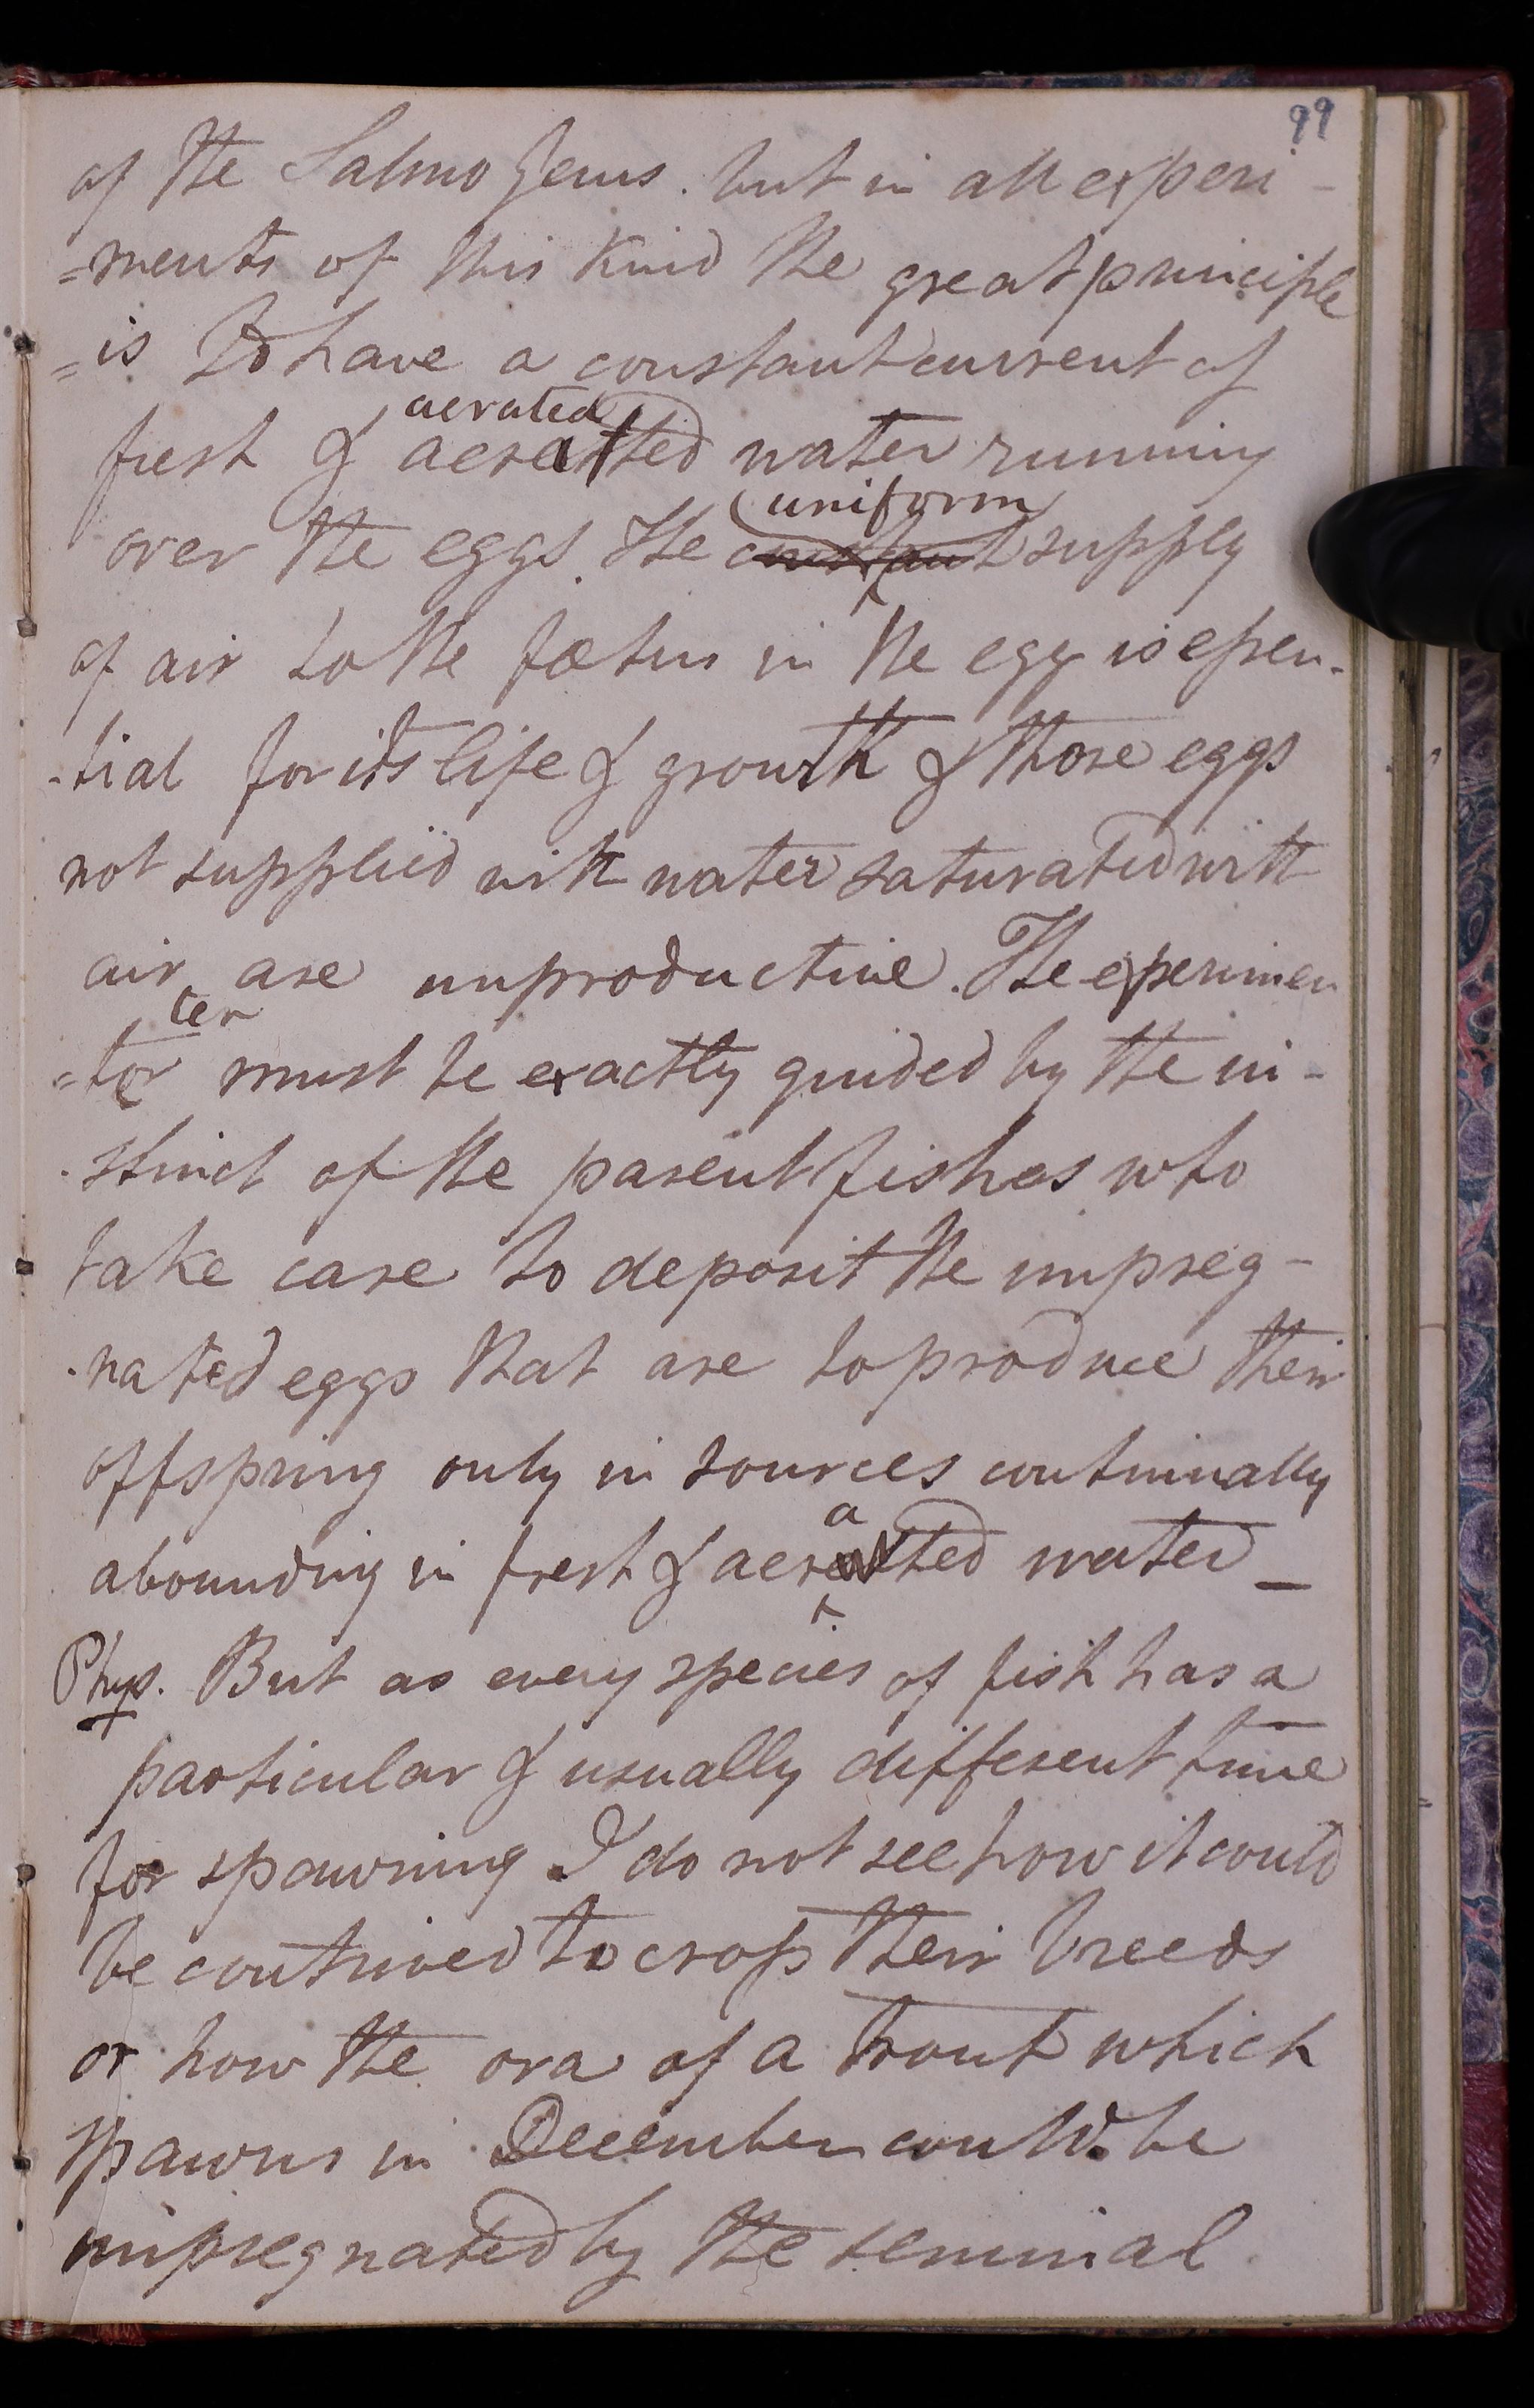 99
of the Salmo Genus. but in all experi-
=ments of this kind the great principle
=is to have a constant current of
aerated
fresh & aerated water running
uniform
over the eggs. The constant supply
of air to the fœtus in the egg is essen-
-tial for its life & growth & those eggs
not supplied with water saturated with
air are unproductive. The experimen
ter
=tor must be exactly guided by the in-
-stinct of the parent fishes who
take care to deposit the impreg-
-nated eggs that are to produce their
offspring only in sources continually
a
abounding in fresh & aerated water _
Phys. But as every species of fish has a
particular & usually different time
for spawning I do not see how it could
be contrived to crop their breeds
or how the ova of a trout which
spawns in December could be
impregnated by the seminal